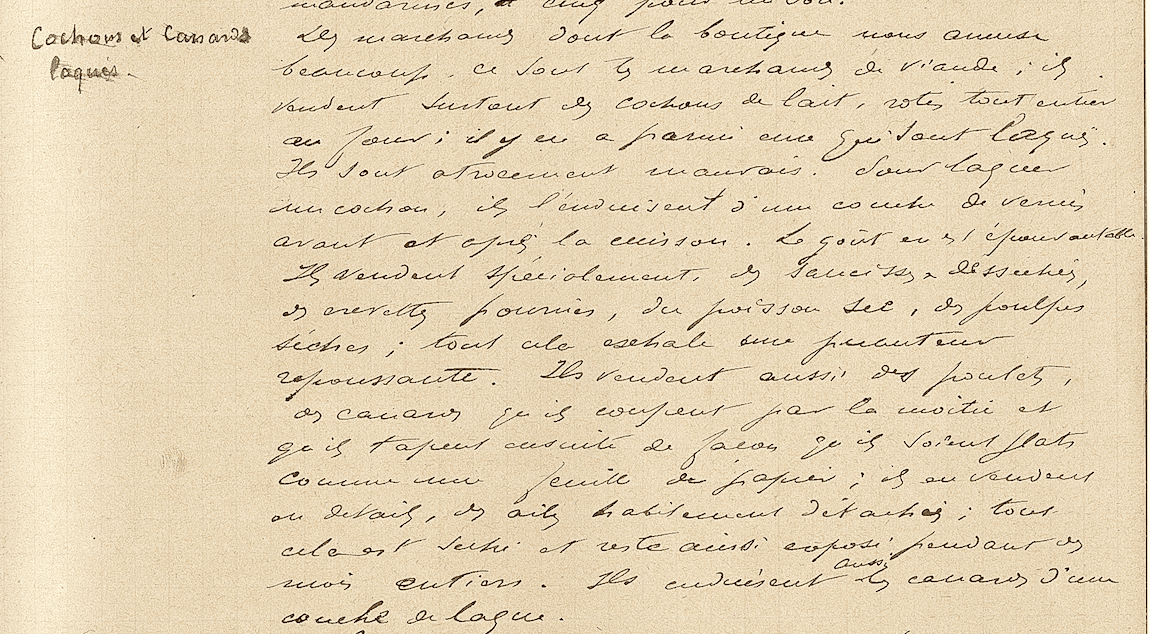 mandarines, à cinq pour un sou.
Cochons et Canards
laqués.
Les marchands dont la boutique nous amuse
beaucoup, ce sont les marchands de viande ; ils
vendent surtout des cochons de lait, rotis tout entier
au four ; il y en a parmi eux qui sont laqués.
Ils sont atrocement mauvais. Pour laquer
un cochon, ils l'enduisent d'une couche de vernis
avant et après la cuisson. Le goût en est épouvantable.
Ils vendent spécialement, des saucisses desséchées,
des crevettes pourries, du poisson sec, des poulpes
séchés ; tout cela exhale une puanteur
repoussante. Ils vendent aussi des poulets,
des canards qu'ils coupent par la moitié et
qu'ils tapent ensuite de façon qu'ils soient plats
comme une feuille de papier ; ils en vendent
au détail, des ailes habilement détachées ; tout
cela est séché et reste ainsi exposé pendant des
mois entiers. Ils enduisent aussi les canards d'une
couche de laque.